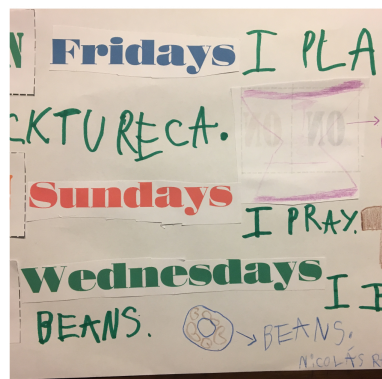 N Fridays I PLA
CKTURECA.
Sundays
I PRAY.
Wednesdays I E
BEANS.
BEANS.
NICOLÁS R